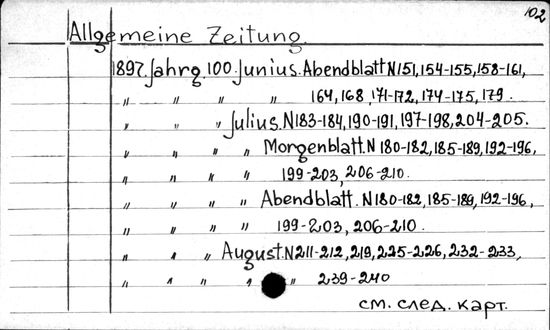 102
Allgemeine Zeitung.
1897. Jahrg. 100. Junius. Abendblatt N 151, 154-155, 158-161,
" " " " 164, 168, 171-172, 174-175, 179.
" " " Julius. N 183-184, 190-191, 197-198, 204-205.
" " " " Morgenblatt. N 180-182, 185-189, 192-196,
" " " " 199-203, 206-210.
" " " " Abendblatt. N 180-182, 185-189, 192-196,
" " " " 199-203, 206-210.
" " " August. N 211-212, 219, 225-226, 232-233,
" " " " " 239-240
см. след. карт.